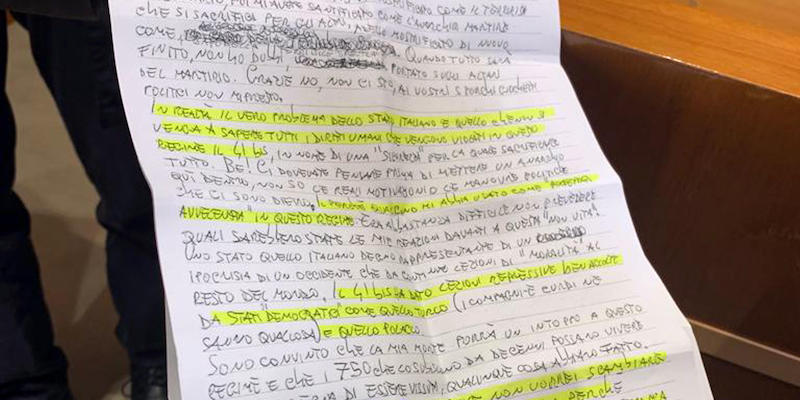 CHE SI SACRIFICI PER GLI ALTRI, QUELLO MOSTRIFICATO DI NUOVO
COME
FINITO, NON HO DUBBI QUANDO TUTTO SARÀ
DEL MARTIRIO. GRAZIE NO, NON CI STO, AI VOSTRI SPORCHI GIOCHETTI
POLITICI NON MI PRESTO.
IN REALTÀ IL VERO PROBLEMA DELLO STATO ITALIANO È QUELLO CHE NON SI
VENGA A SAPERE TUTTI I DIRITTI UMANI CHE VENGONO VIOLATI IN QUESTO
REGIME IL 41 BIS, IN NOME DI UNA "SICUREZZA" PER LA QUALE SACRIFICARE
TUTTO. BE! CI DOVEVATE PENSARE PRIMA DI METTERE UN ANARCHICO
QUI DENTRO, NON SO LE REALI MOTIVAZIONI O LE MANOVRE POLITICHE
CHE CI SONO DIETRO. IL PERCHÈ QUALCUNO MI ABBIA USATO COME "POLPETTA
AVVELENATA" IN QUESTO REGIME ERA ABBASTANZA DIFFICILE NON PREVEDERE
QUALI SAREBBERO STATE LE MIE REAZIONI DAVANTI A QUESTA "NON VITA".
UNO STATO QUELLO ITALIANO DEGNO RAPPRESENTANTE DI UN
IPOCRISIA DI UN OCCIDENTE CHE DÀ CONTINUE LEZIONI DI "MORALITÀ" AL
RESTO DEL MONDO. IL 41 BIS HA DATO LEZIONI REPRESSIVE BEN ACCOLTE
DA STATI "DEMOCRATICI" COME QUELLO TURCO (I COMPAGNI/E CURDI NE
SANNO QUALCOSA) E QUELLO POLACCO.
SONO CONVINTO CHE LA MIA MORTE PORRÀ UN INTOPPO A QUESTO
REGIME E CHE I 750 CHE LO SUBISCONO DA DECENNI POSSANO VIVERE
DEGNA DI ESSERE VISSUTA, QUALUNQUE COSA ABBIANO FATTO.
NON VORREI SCAMBIARLA
PERCHÈ